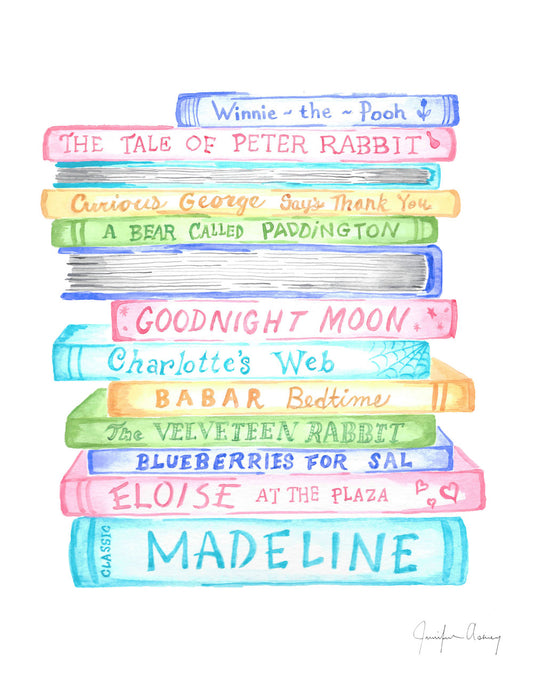 Winnie~the~Pooh
THE TALE OF PETER RABBIT
Curious George Says Thank You
A BEAR CALLED PADDINGTON
GOODNIGHT MOON
Charlotte's Web
BABAR Bedtime
The VELVETEEN RABBIT
BLUEBERRIES FOR SAL
ELOISE AT THE PLAZA
CLASSIC
MADELINE